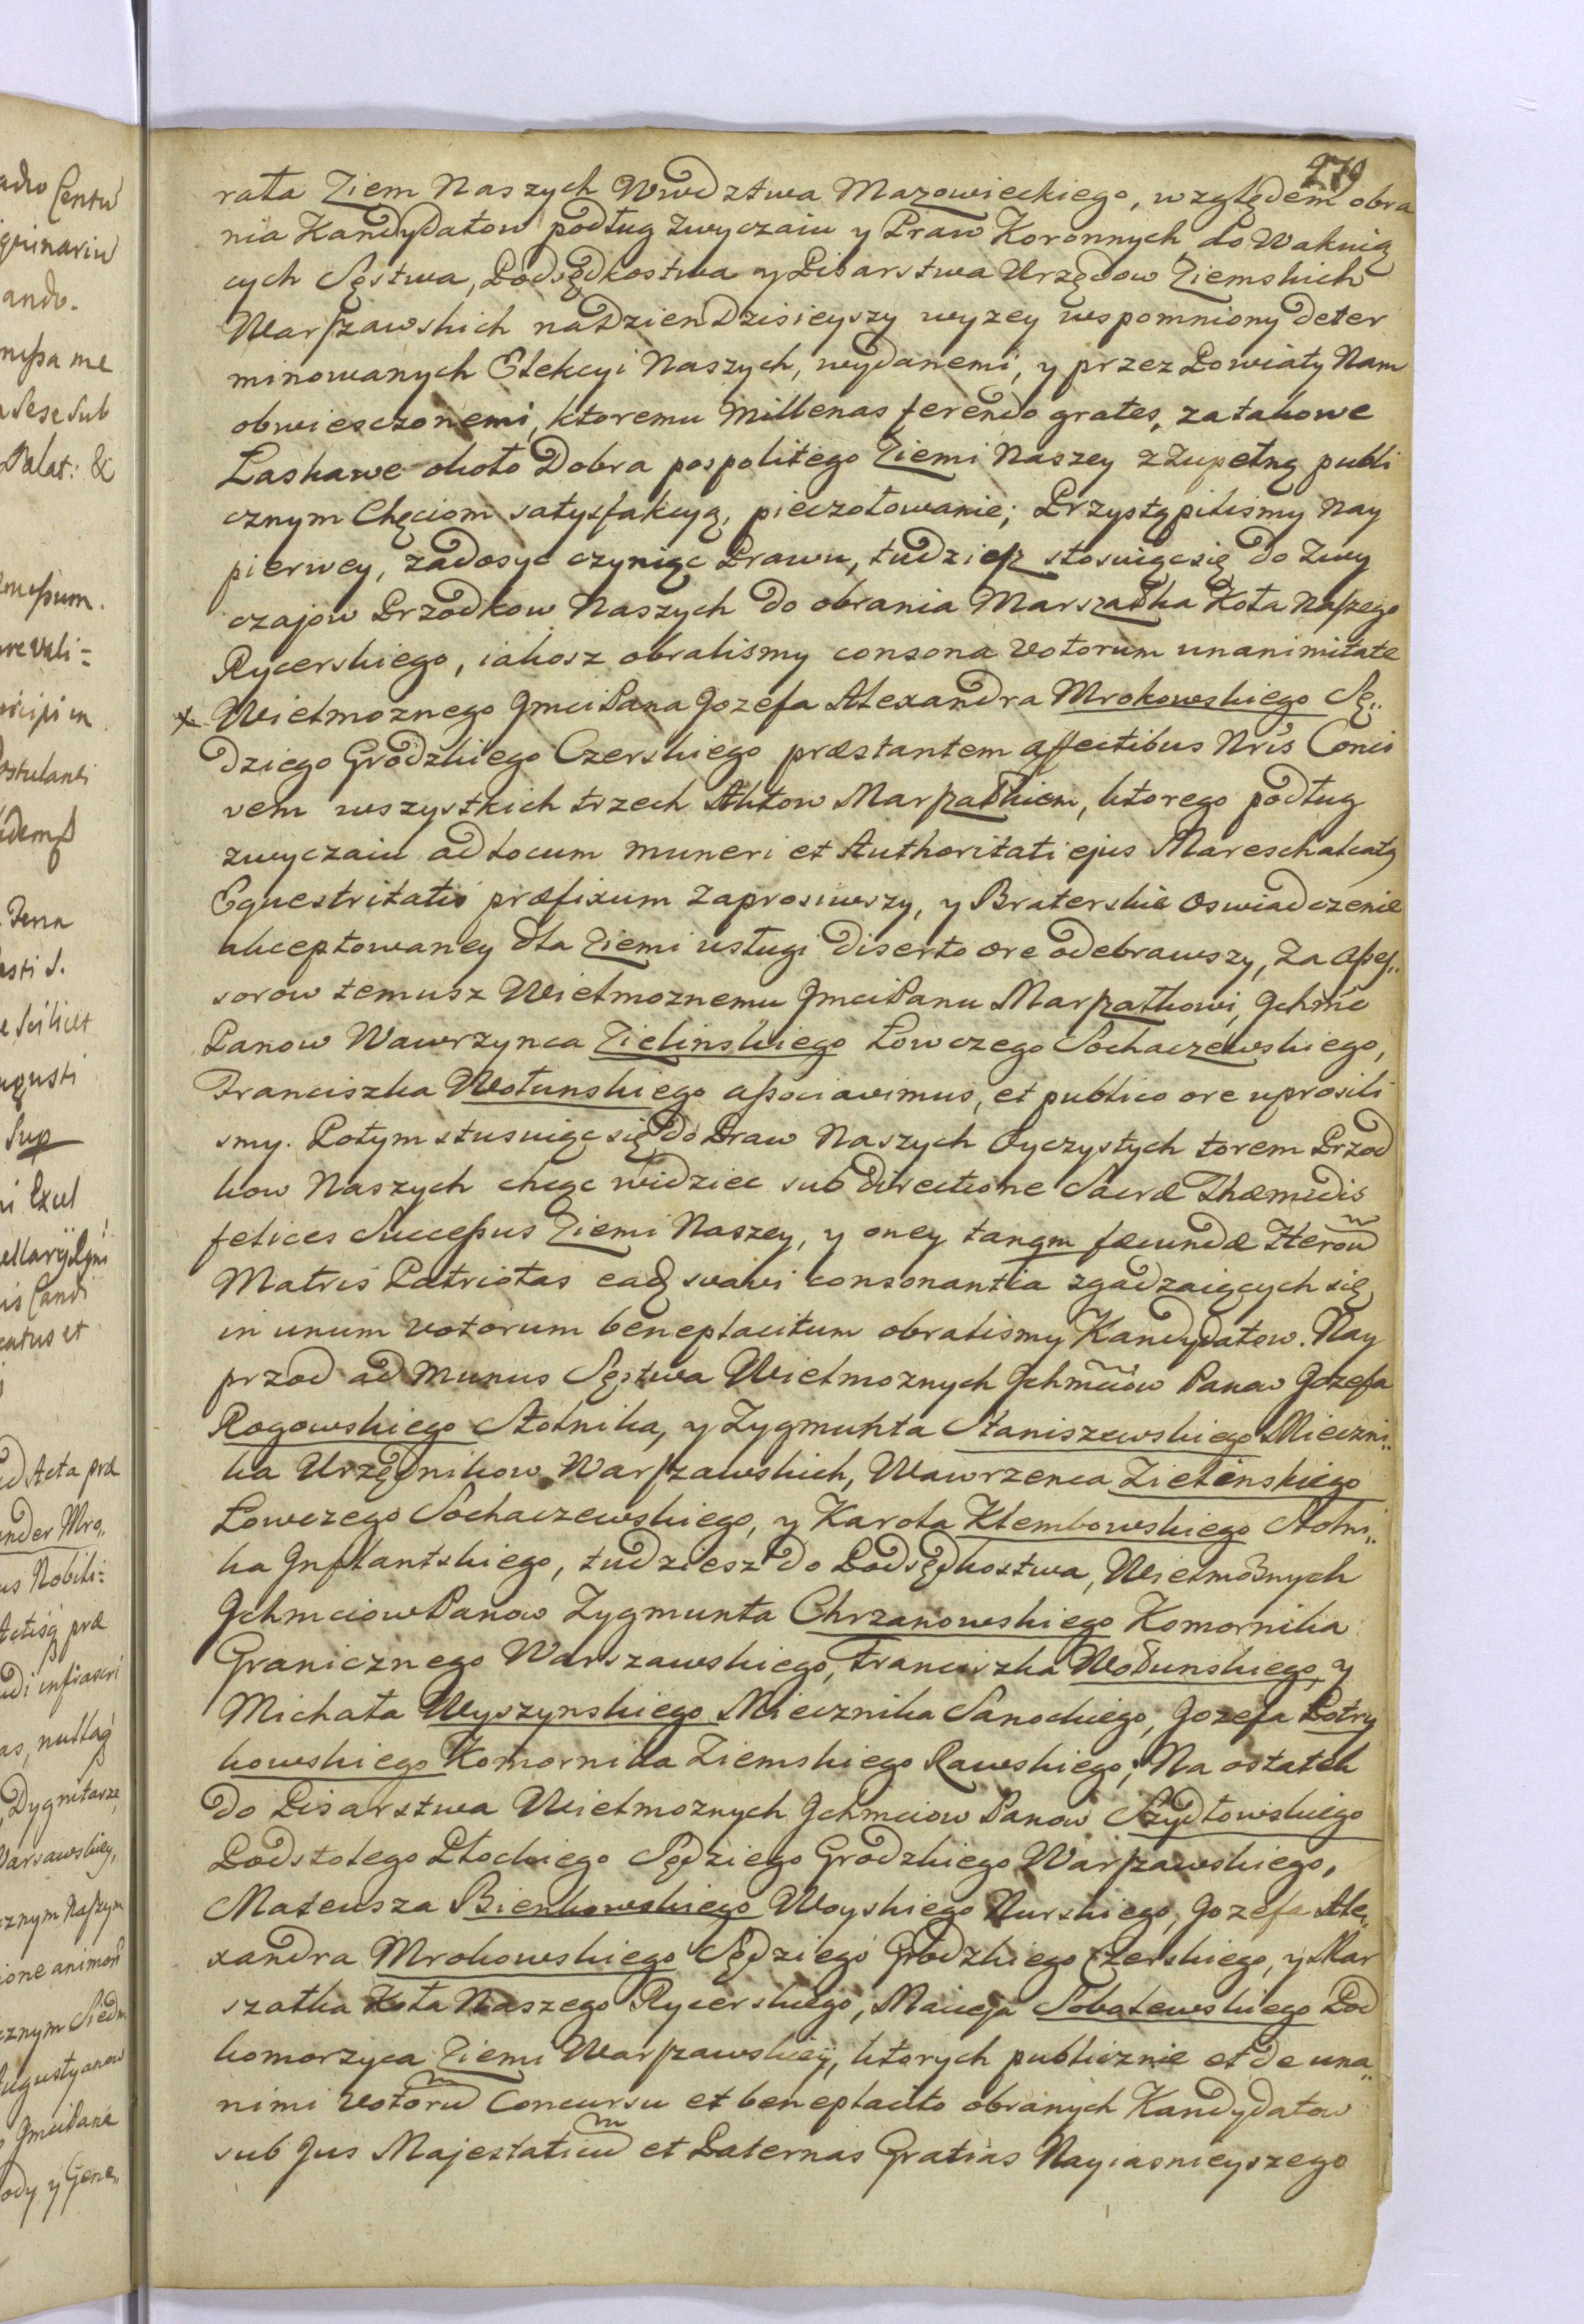 279
rała Ziem Naszych Wwdztwa Mazowieckiego, względem obra
nia Kandydatow podług zwyczaiu y Praw Koronnych do Wakuią
cych Sęstwa, Podsędkostwa y Pisarstwa Urzędow Ziemskich
Warszawskich na Dzien Dzisieyszy wyzey wspomniony deter
minowanych Elekcyi Naszych, wydanemi, y przez Powiaty Nam
obwiesczonemi, ktoremu millenas ferendo grates, za takowe
Łaskawe około Dobra pospolitego Ziemi Naszey z Zupełną publi
cznym Chęciom satysfakcyą, pieczołowanie; Przystąpilismy Nay
pierwey, zadosyc czyniąc Prawu, tudziesz stosuiąc się do Zwy
czajow Przodkow Naszych do obrania Marszałka Koła Naszego
Rycerskiego, iakosz obralismy consona votorum unanimitate
x Wielmoznego Jmci Pana Jozefa Alexandra Mrokowskiego Sę„
dziego Grodzkiego Czerskiego præstantem affectibus Nris Conci
vem wszystkich trzech Aktow Marszałkiem, ktorego podług
zwyczaiu ad Locum muneri et Authoritati ejus Mareschalcatq
Equestritatis præfixum Zaprosiwszy, y Braterskie Oswiadczenie
akceptowaney dla Ziemi usługi diserto ore odebrawszy, Za Asses„
sorow temusz Wielmoznemu Jmci Panu Marszałkowi, Jchmc
Panow Wawrzynca Zielinskiego Łowczego Sochaczewskiego,
Franciszka Wołunskiego associavimus, et publico ore uprosili
smy. Potym stusuiąc się do Praw Naszych Oyczystych torem Przod
kow Naszych chcąc widziec sub directione Sacræ Thæmidis
felices Successus Ziemi Naszey, y oney tanqm fæcundæ Herou
Matris Patriotas eadq suavi consonantia zgadzaiących się
in unum votorum beneplacitum obralismy Kandydatow. Nay
przod ad munus Sęstwa Wielmoznych Jchmciow Panow Jozefa
Rogowskiego Stolnika, y Zygmunta Staniszewskiego Mieczni„
ka Urzędnikow Warszawskich, Wawrzenca Zielenskiego
Łowczego Sochaczewskiego, y Karola Klembowskiego Stolni„
ka Jnflantskiego, tudziesz do Podsędkostwa, Wielmoznych
Jchmciow Panow Zygmunta Chrzanowskiego Komornika
Granicznego Warszawskiego, Franciszka Wołunskiego, y
Michała Wyszynskiego Miecznika Sanockiego, Jozefa Potry
kowskiego Komornika Ziemskiego Rawskiego; Na ostatek
do Pisarstwa Wielmoznych Jchmciow Panow Szydłowskiego
Podstolego Płockiego Sędziego Grodzkiego Warszawskiego,
Mateusza Bienkowskiego Woyskiego Nurskiego, Jozefa Ale„
xandra Mrokowskiego Sędziego Grodzkiego Czerskiego, y Mar
szałka Koła Naszego Rycerskiego, Macieja Sobolewskiego Pod
komorzyca Ziemi Warszawskiey, ktorych publicznie et de una„
nimi votoru Concursu et beneplacito obranych Kandydatow
sub Jus Majestaticu et Paternas Gratias Nayiasnieyszego